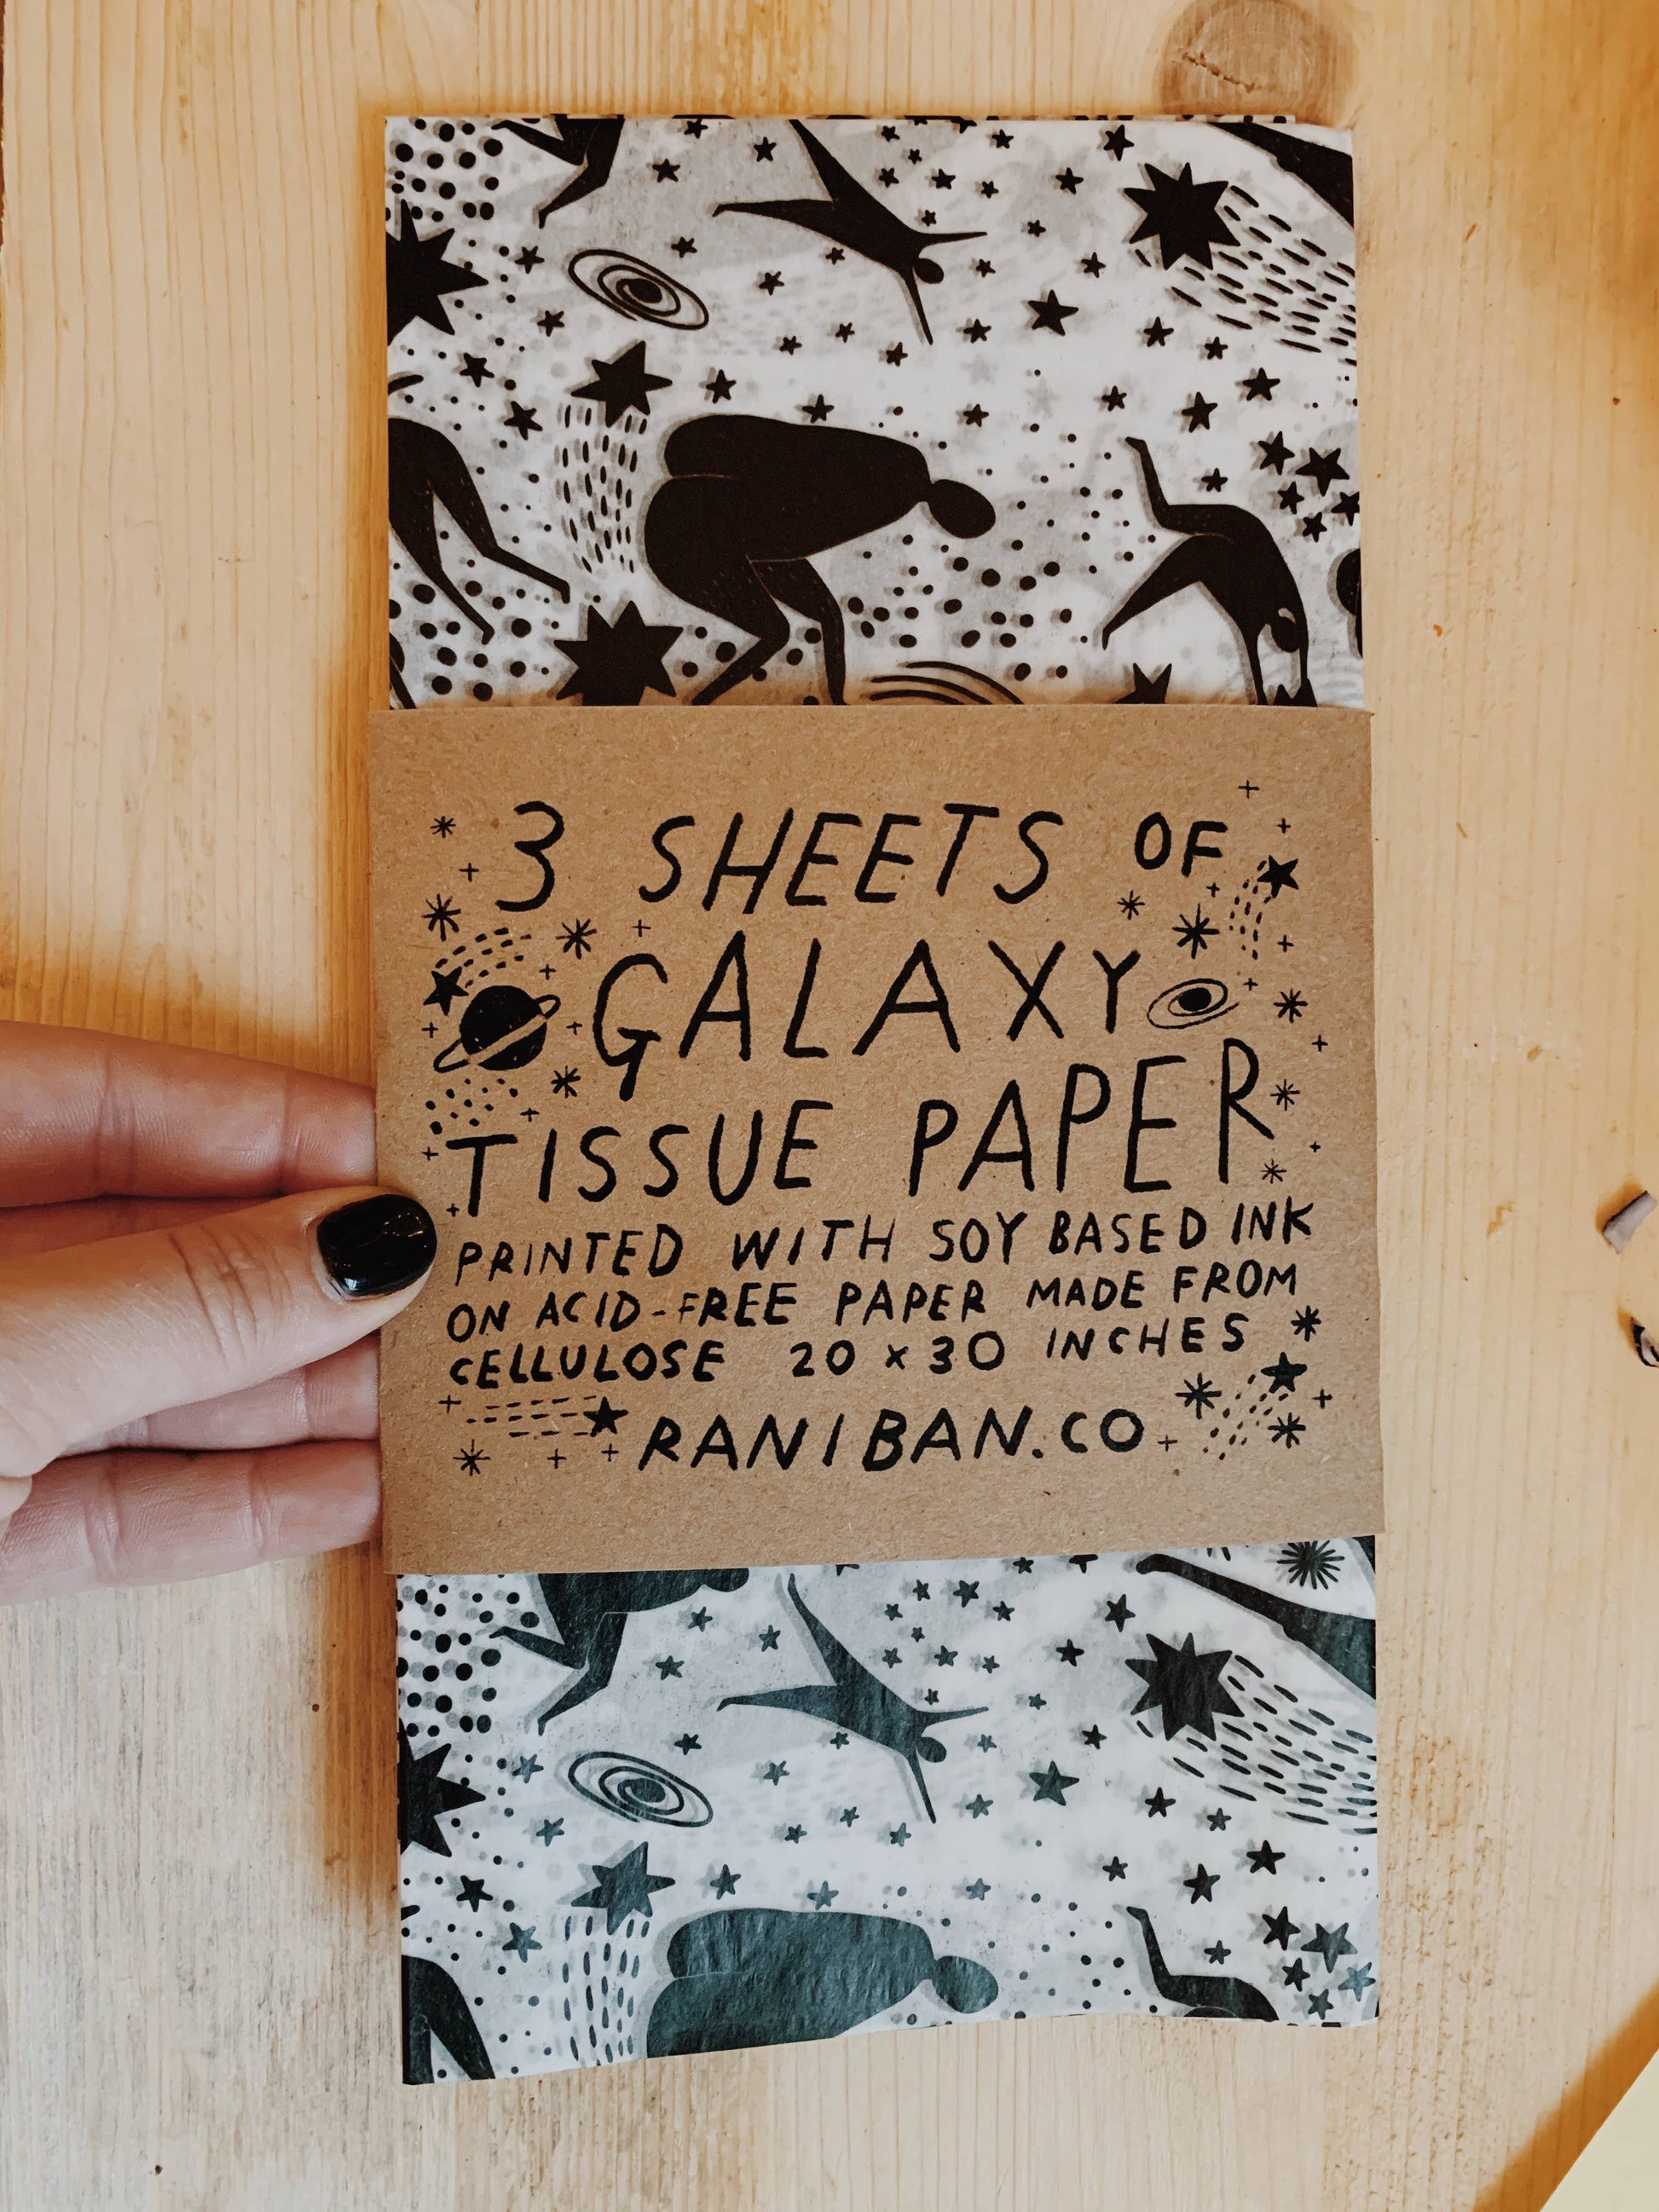 3 SHEETS OF
GALAXY
TISSUE PAPER
PRINTED WITH SOY BASED INK
ON ACID-FREE PAPER MADE FROM
CELLULOSE 20 x 30 INCHES
RANIBAN.CO